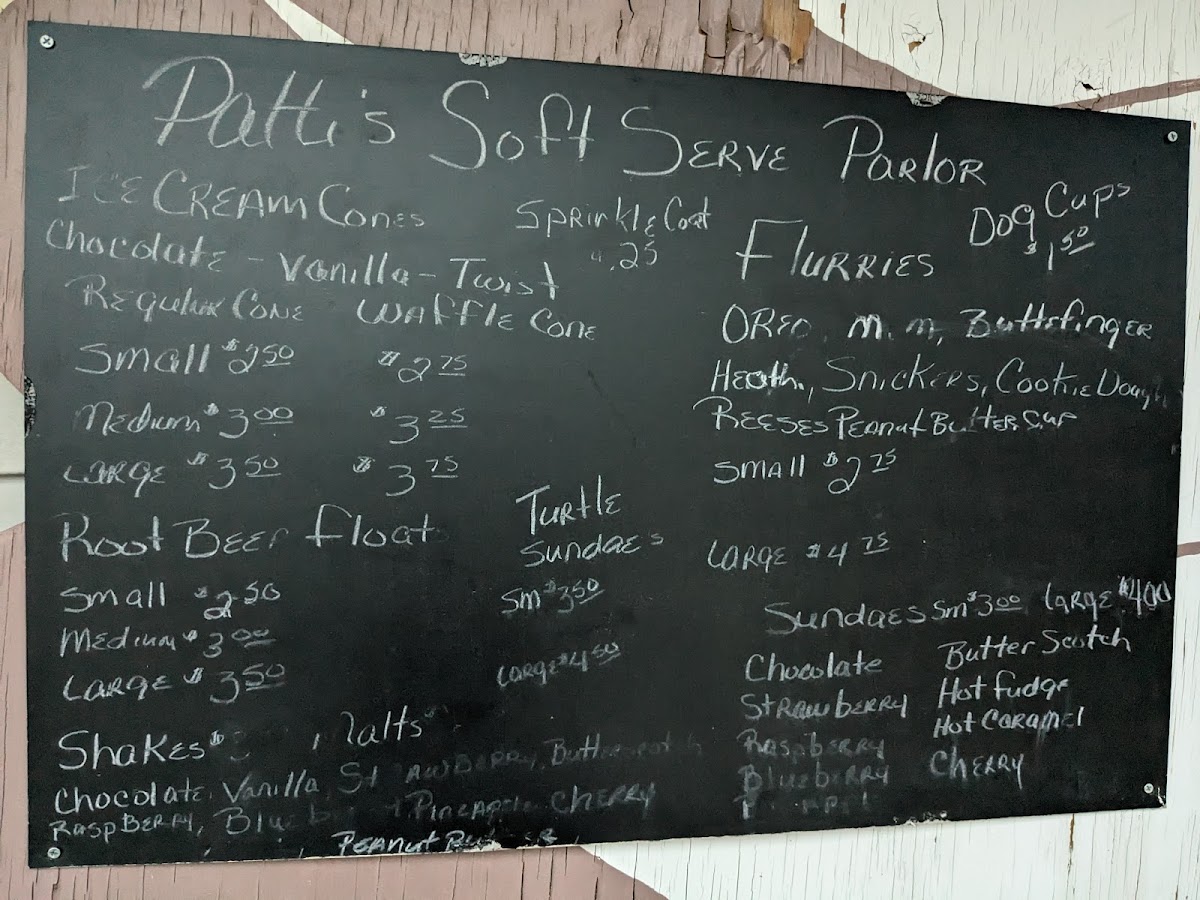 Patti's Soft Serve Parlor
Ice Cream Cones
Sprinkle Coat
.25
Chocolate - Vanilla - Twist
Regular Cone Waffle Cone
Small $2.50 $2.75
Medium $3.00 $3.25
Large $3.50 $3.75
Root Beer Float
Small $2.50
Medium $3.00
Large $3.50
Turtle
Sundaes
Sm $3.50
Large $4.50
Shakes $ Malts
Chocolate, Vanilla, Strawberry, Butterscotch
Raspberry, Blueberry, Pineapple, Cherry
Peanut Butter
Dog Cups
$1.50
Flurries
Oreo, M.M, Butterfinger
Heath, Snickers, Cookie Dough
Reeses Peanut Butter Cup
Small $2.75
Large $4.75
Sundaes Sm $3.00 Large $4.00
Chocolate Butter Scotch
Strawberry Hot Fudge
Raspberry Hot Caramel
Blueberry Cherry